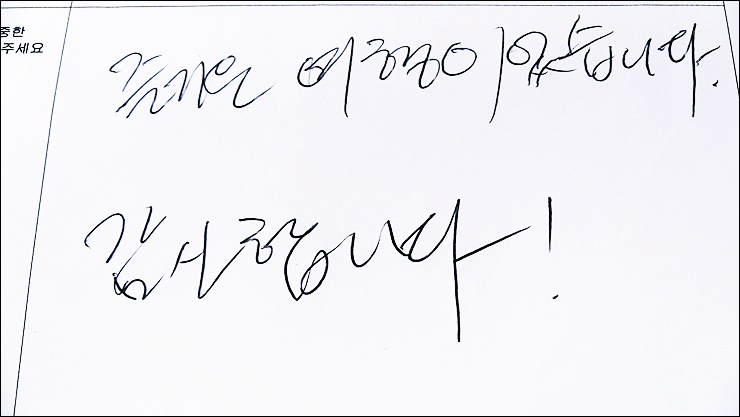 중한
주세요
즐거운 여행이었습니다.
감사합니다!